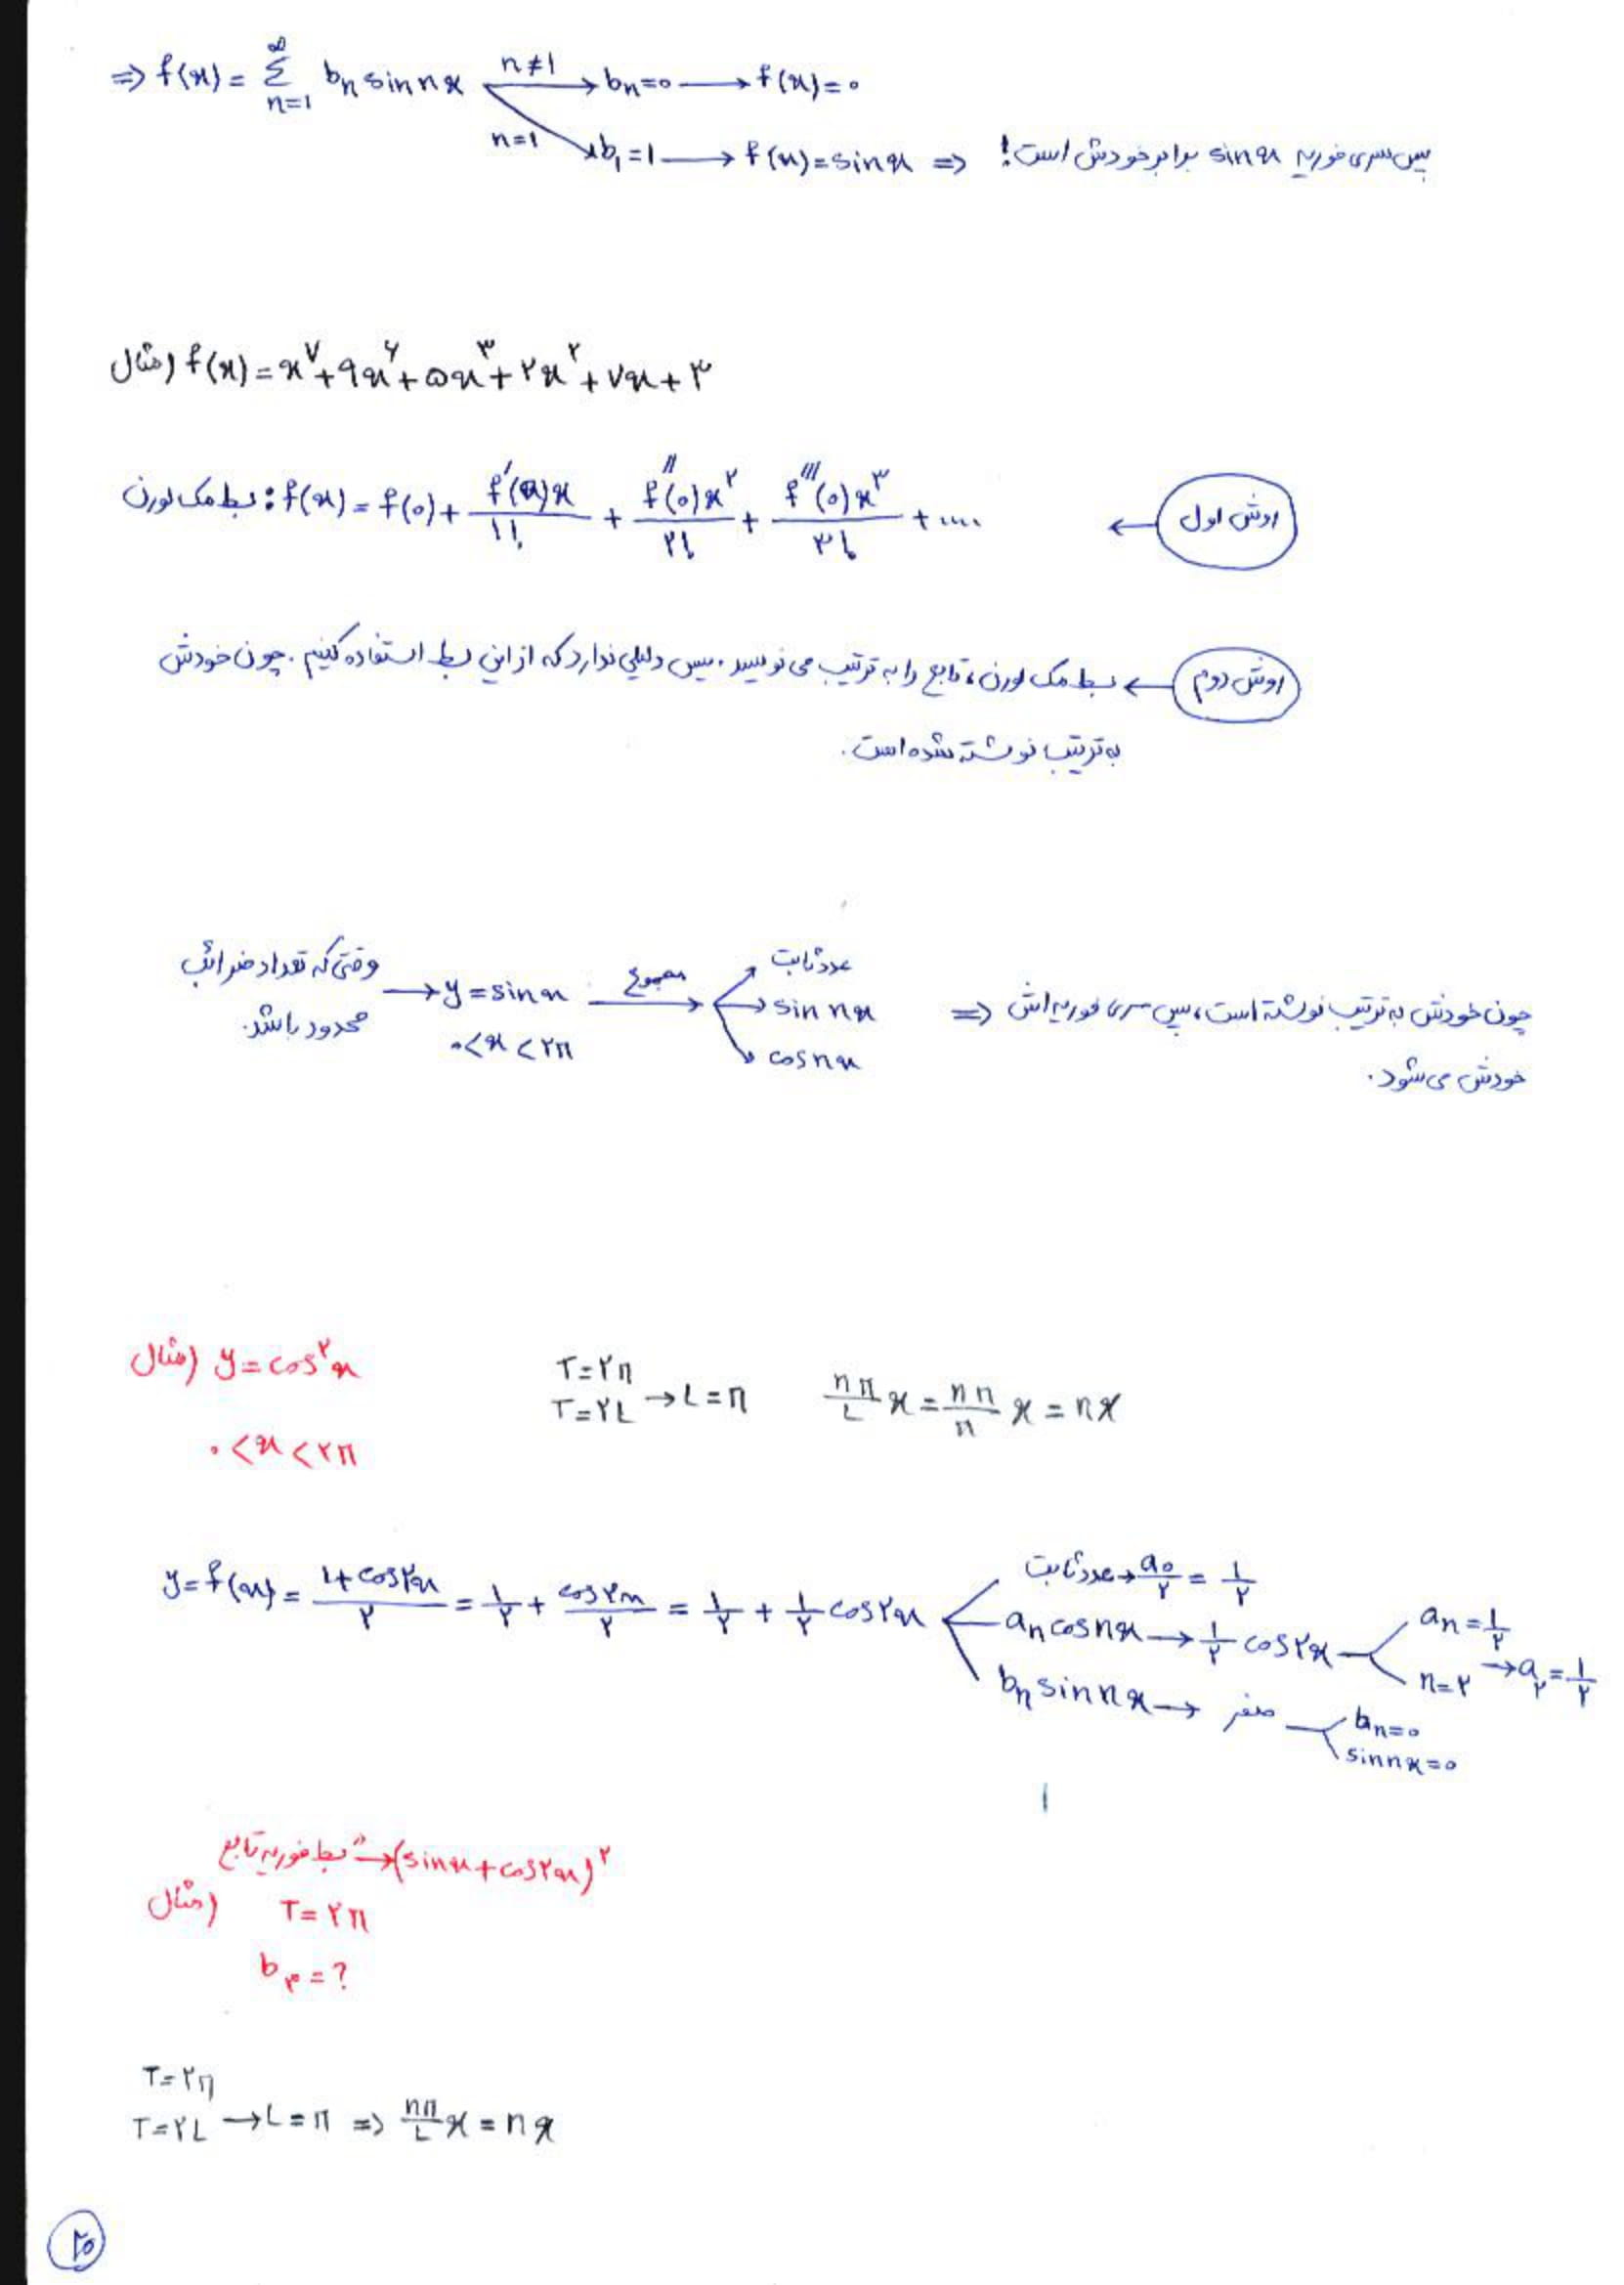 ⇒ f(x) = Σ_{n=1}^{∞} b_n sin nx  n≠1 → b_n = 0 → f(x) = 0
n=1 → b_1 = 1 → f(x) = sin x ⇒ پس سری فوریه sin x برابر خودش است!
مثال) f(x) = x^۷ + ۹x^۶ + ۵x^۳ + ۲x^۲ + ۷x + ۳
روش اول ← بسط مک لورن: f(x) = f(0) + f'(0)x/۱! + f''(0)x^۲/۲! + f'''(0)x^۳/۳! + ....
روش دوم ← بسط مک لورن، تابع را به ترتیب می نویسد. پس دلیلی ندارد که از این بسط استفاده کنیم. چون خودش
به ترتیب نوشته شده است.
وقتی که تعداد ضرائب محدود باشد. → y = sin x  مجموع → عدد ثابت
sin nx
cos nx
۰ < x < ۲π
⇒ چون خودش به ترتیب نوشته است، پس سری فوریه اش
خودش می شود.
مثال) y = cos^۲ x
۰ < x < ۲π
T = ۲π
T = ۲L → L = π  nπ/L x = nπ/π x = nx
y = f(x) = (۱ + cos ۲x)/۲ = ۱/۲ + cos ۲x/۲ = ۱/۲ + ۱/۲ cos ۲x
عدد ثابت → a_0/۲ = ۱/۲
a_n cos nx → ۱/۲ cos ۲x  a_n = ۱/۲
n = ۲ → a_۲ = ۱/۲
b_n sin nx → صفر  b_n = 0
sin nx = 0
مثال) بسط فوریه تابع → (sin x + cos ۲x)^۲
T = ۲π
b_۳ = ?
T = ۲π
T = ۲L → L = π ⇒ nπ/L x = nx
۲۵